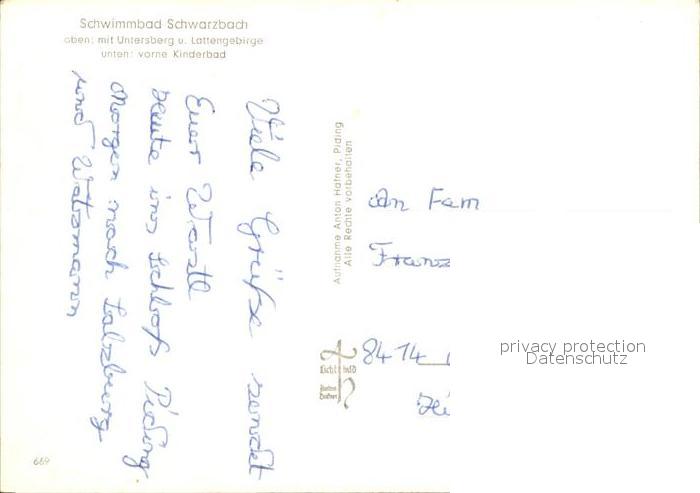 Schwimmbad Schwarzbach
oben: mit Untersberg u. Lattengebirge
unten: vorne Kinderbad
Viele Grüße sendet
Euer Wastl
Heute ins Schloß Piding
Morgen nach Salzburg
und Watzmann
Aufnahme Anton Hafner, Piding
Alle Rechte vorbehalten
An Fam
Franz
8414
privacy protection
Datenschutz
669